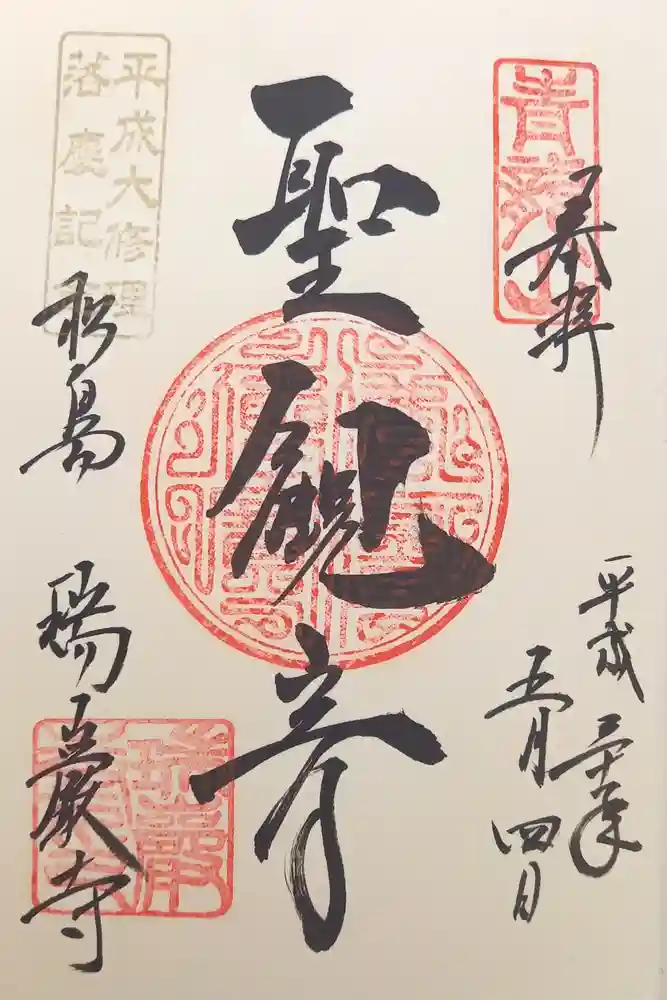 青龍山
奉拝
平成三十年
五月四日
聖観音
平成大修理
落慶記念
松島
瑞巌寺